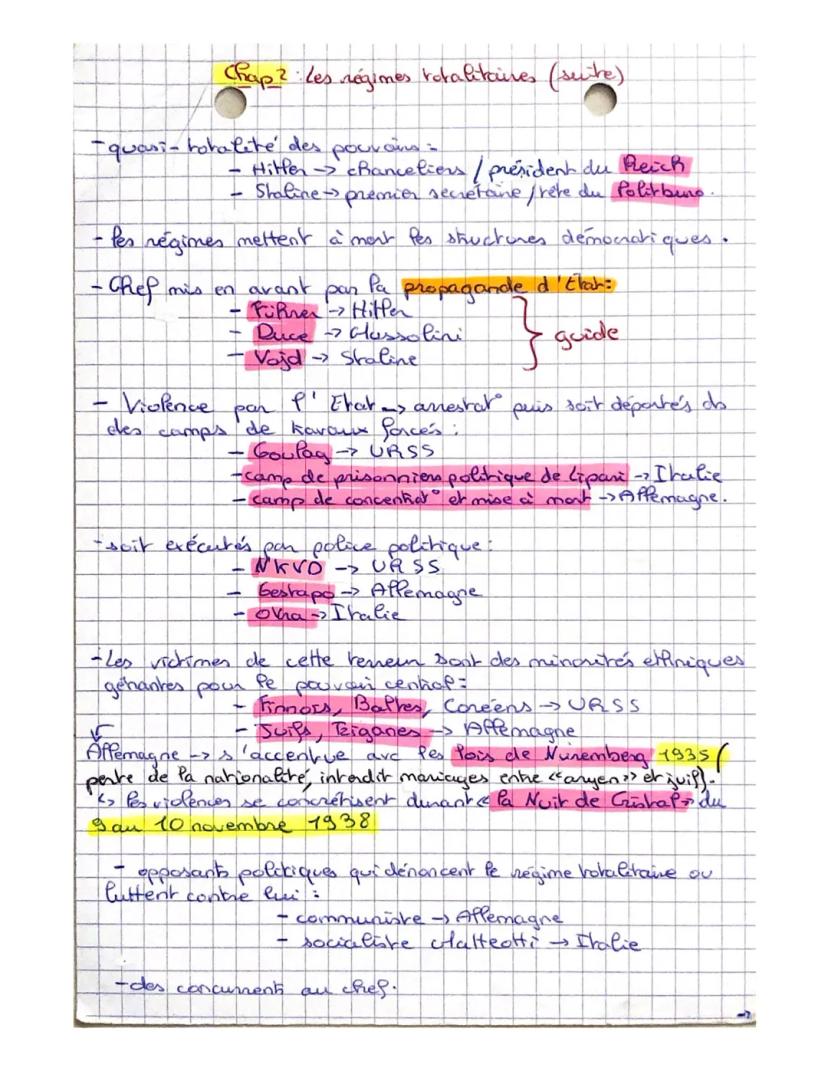 Chap 2 : Les régimes totalitaires (suite)
- quasi-totalité des pouvoirs :
- Hitler -> chanceliers / président du Reich
- Staline -> premier secrétaire / tête du Politburo.
- les régimes mettent à mort les structures démocratiques.
- Chef mis en avant par la propagande d'Etat :
- Führer -> Hitler
- Duce -> Mussolini
- Vojd -> Staline
guide
- Violence par l'Etat -> arrestat° puis soit déportés ds
des camps de travaux forcés :
- Goulag -> URSS
- camp de prisonniers politique de Lipari -> Italie
- camp de concentrat° et mise à mort -> Allemagne.
- soit exécutés par police politique :
- NKVD -> URSS
- Gestapo -> Allemagne
- OVRA -> Italie
- Les victimes de cette terreur sont des minorités ethniques
gênantes pour le pouvoir central :
- Finnois, Baltes, Coréens -> URSS
- Juifs, Tziganes -> Allemagne
Allemagne -> s'accentue avc les lois de Nuremberg 1935 (
perte de la nationalité, interdit mariages entre «aryen» et juif).
↳ les violences se concrétisent durant « la Nuit de Cristal » du
9 au 10 novembre 1938
- opposants politiques qui dénoncent le régime totalitaire ou
luttent contre lui :
- communiste -> Allemagne
- socialiste Matteotti -> Italie
- des concurrents au chef.
->